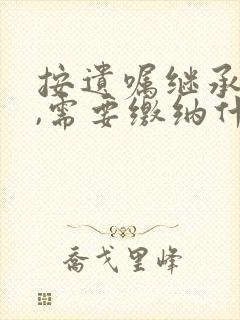 按遗嘱继承
,需要缴纳什
乔戈里峰